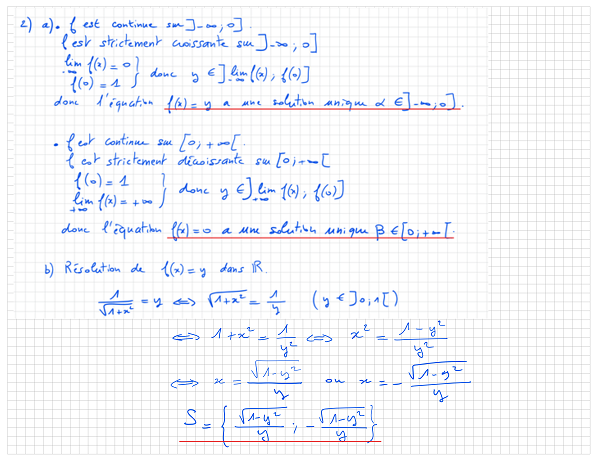 2) a) • f est continue sur ]-∞ ; 0].
f est strictement croissante sur ]-∞ ; 0]
lim f(x) = 0
-∞
f(0) = 1 } donc y ∈ ] lim f(x) ; f(0)]
-∞
donc l'équation f(x) = y a une solution unique α ∈ ]-∞ ; 0].
• f est continue sur [0 ; +∞[.
f est strictement décroissante sur [0 ; +∞[
f(0) = 1
lim f(x) = +∞ } donc y ∈ ] lim f(x) ; f(0)]
+∞ +∞
donc l'équation f(x) = 0 a une solution unique β ∈ [0 ; +∞[.
b) Résolution de f(x) = y dans ℝ.
1/√(1+x²) = y ⟺ √(1+x²) = 1/y (y ∈ ]0;1[)
⟺ 1+x² = 1/y² ⟺ x² = (1-y²)/y²
⟺ x = √(1-y²)/y ou x = -√(1-y²)/y
S = { √(1-y²)/y ; -√(1-y²)/y }